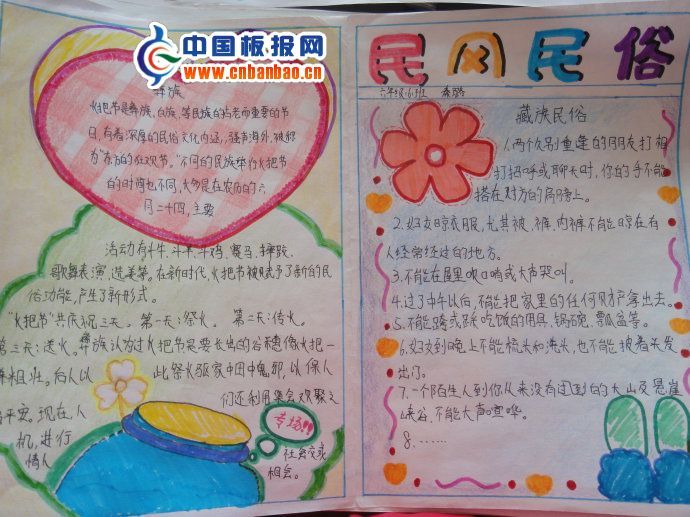 中国板报网
www.cnbanbao.cn
彝族
火把节是彝族、白族、等民族的古老而重要的节
日,有着深厚的民俗文化内涵,强声海外,被称
为"东方的狂欢节。"不同的民族举行火把节
的时间也不同,大多是在农历的六
月二十四,主要
活动有斗牛、斗羊、斗鸡、赛马、摔跤、
歌舞表演、选美等。在新时代,火把节被赋予了新的民
俗功能,产生了新形式。
"火把节"共庆祝三天。第一天:祭火。第二天:传火。
第三天:送火。彝族认为过火把节是要长出的谷穗像火把一
样粗壮。后人以
此祭火驱家中田中鬼邪,以保人
平安。现在,人
们还利用集会欢聚之
机,进行
社会交或
情人
相会。
专场!!
民风民俗
六年级6班
藏族民俗
1.两个久别重逢的朋友打招
打招呼或聊天时,你的手不能
搭在对方的肩膀上。
2.妇女晾衣服,尤其被、裤、内裤不能晾在有
人经常经过的地方。
3.不能在屋里吹口哨或大声哭叫。
4.过了中午以后,不能把家里的任何财产拿出去。
5.不能跨或踩吃饭的用具、锅碗、瓢盆等。
6.妇女到晚上不能梳头和洗头,也不能披着头发
出门。
7.一个陌生人到你从来没有困到的大山及悬崖
峡谷,不能大声喧哗。
8.……